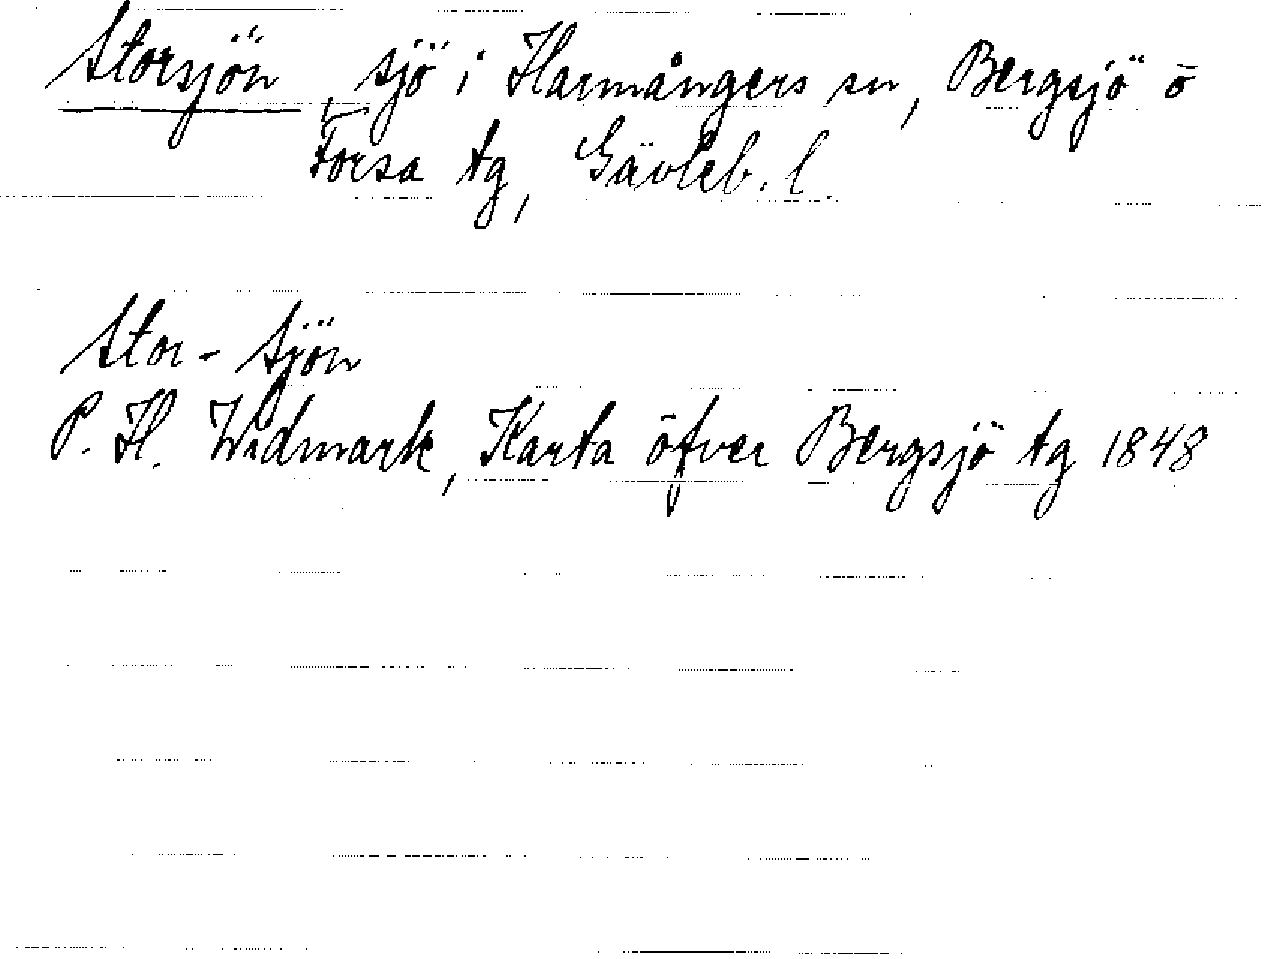 Storsjön sjö i Harmångers sn, Bergsjö o
Forsa tg, Gävleb. l.
Stor-Sjön
P. H. Widmark, Karta öfver Bergsjö tg 1848